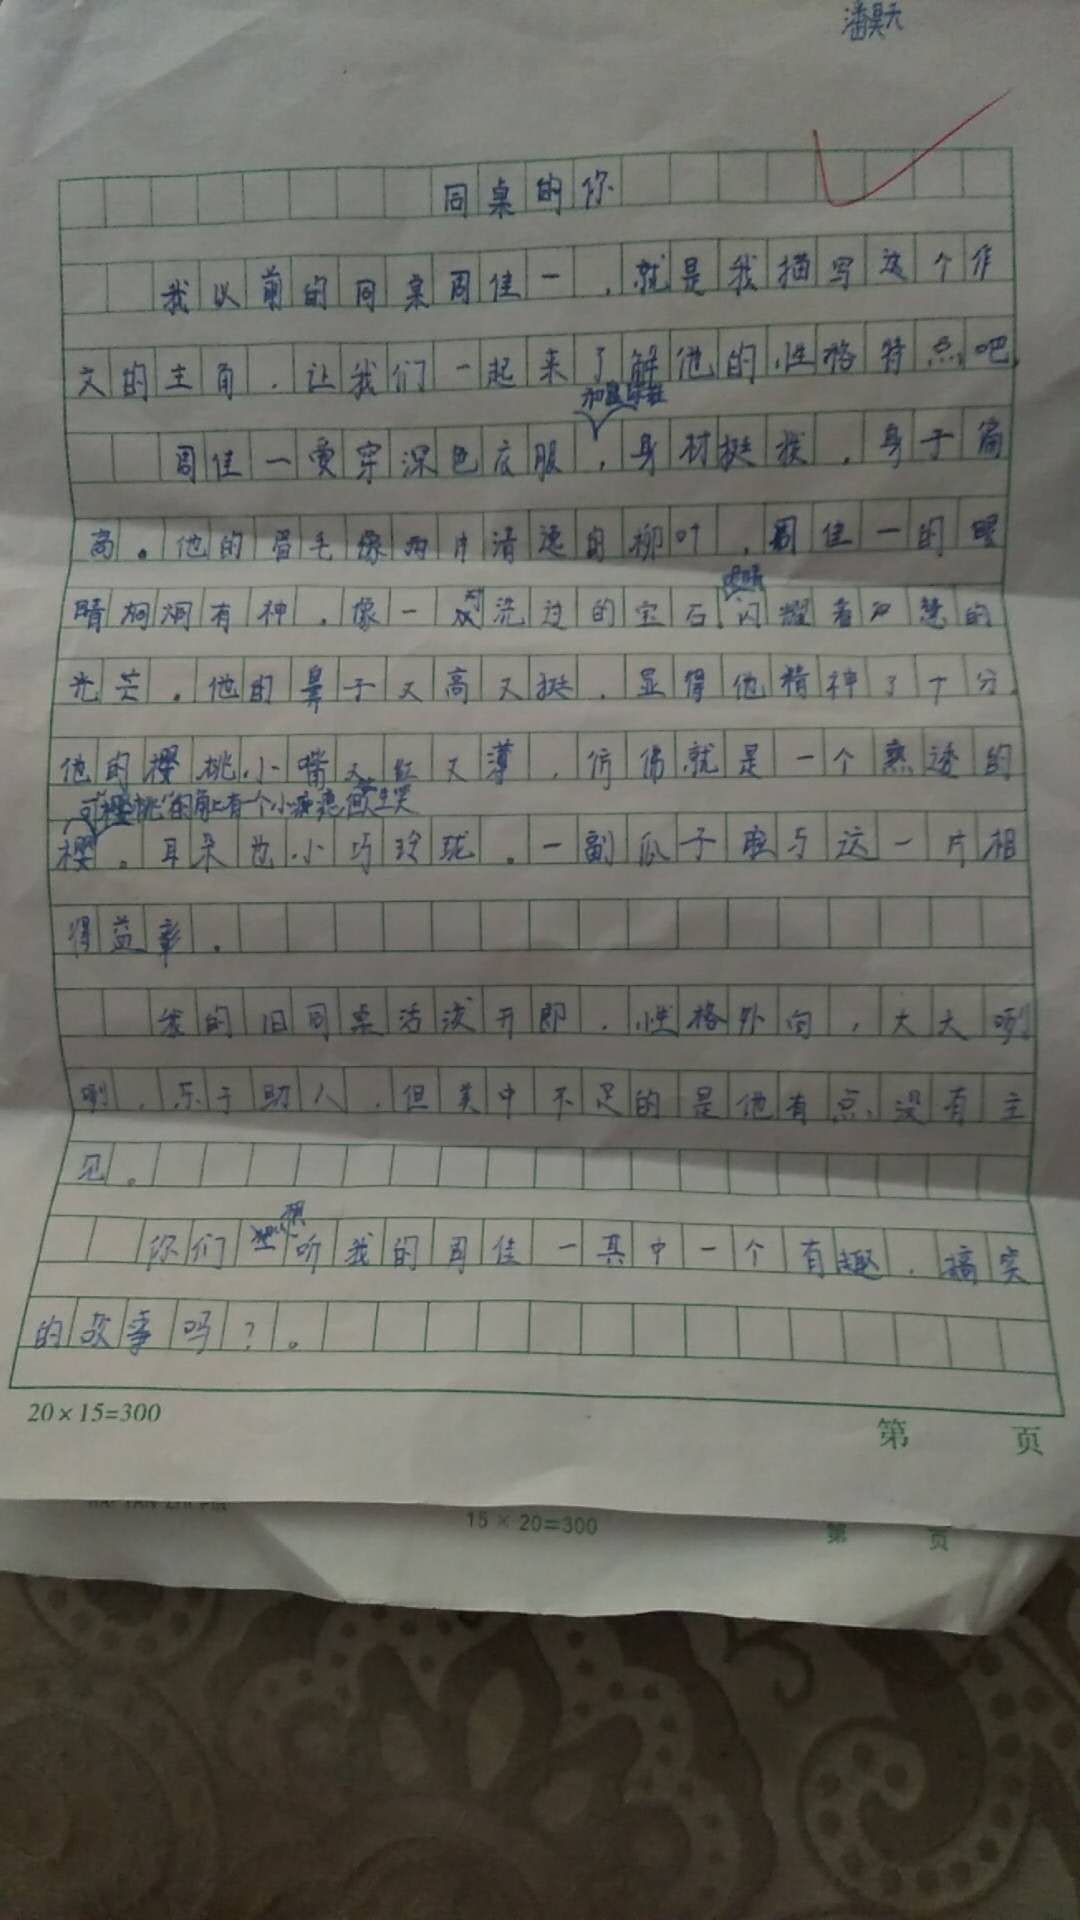 潘昊天
同桌的你
我以前的同桌周佳一,就是我描写这个作
文的主角,让我们一起来了解他的性格特点吧
周佳一爱穿深色衣服,身材挺拔,身子偏
高。他的眉毛像两片清逸的柳叶,周佳一的眼
睛炯炯有神,像一双洗过的宝石闪耀着智慧的
光芒。他的鼻子又高又挺,显得他精神了十分,
他的樱桃小嘴又红又薄,仿佛就是一个熟透的
可"樱桃"的角上有一个小
樱。耳朵也小巧玲珑。一副瓜子脸与这一片相
得益彰。
我的旧同桌活泼开郎,性格外向,大大咧
咧,乐于助人,但美中不足的是他有点没有主
见。
你们想听我的周佳一其中一个有趣,搞笑
的故事吗?。
20×15=300
第 页
15 × 20=300
第 页